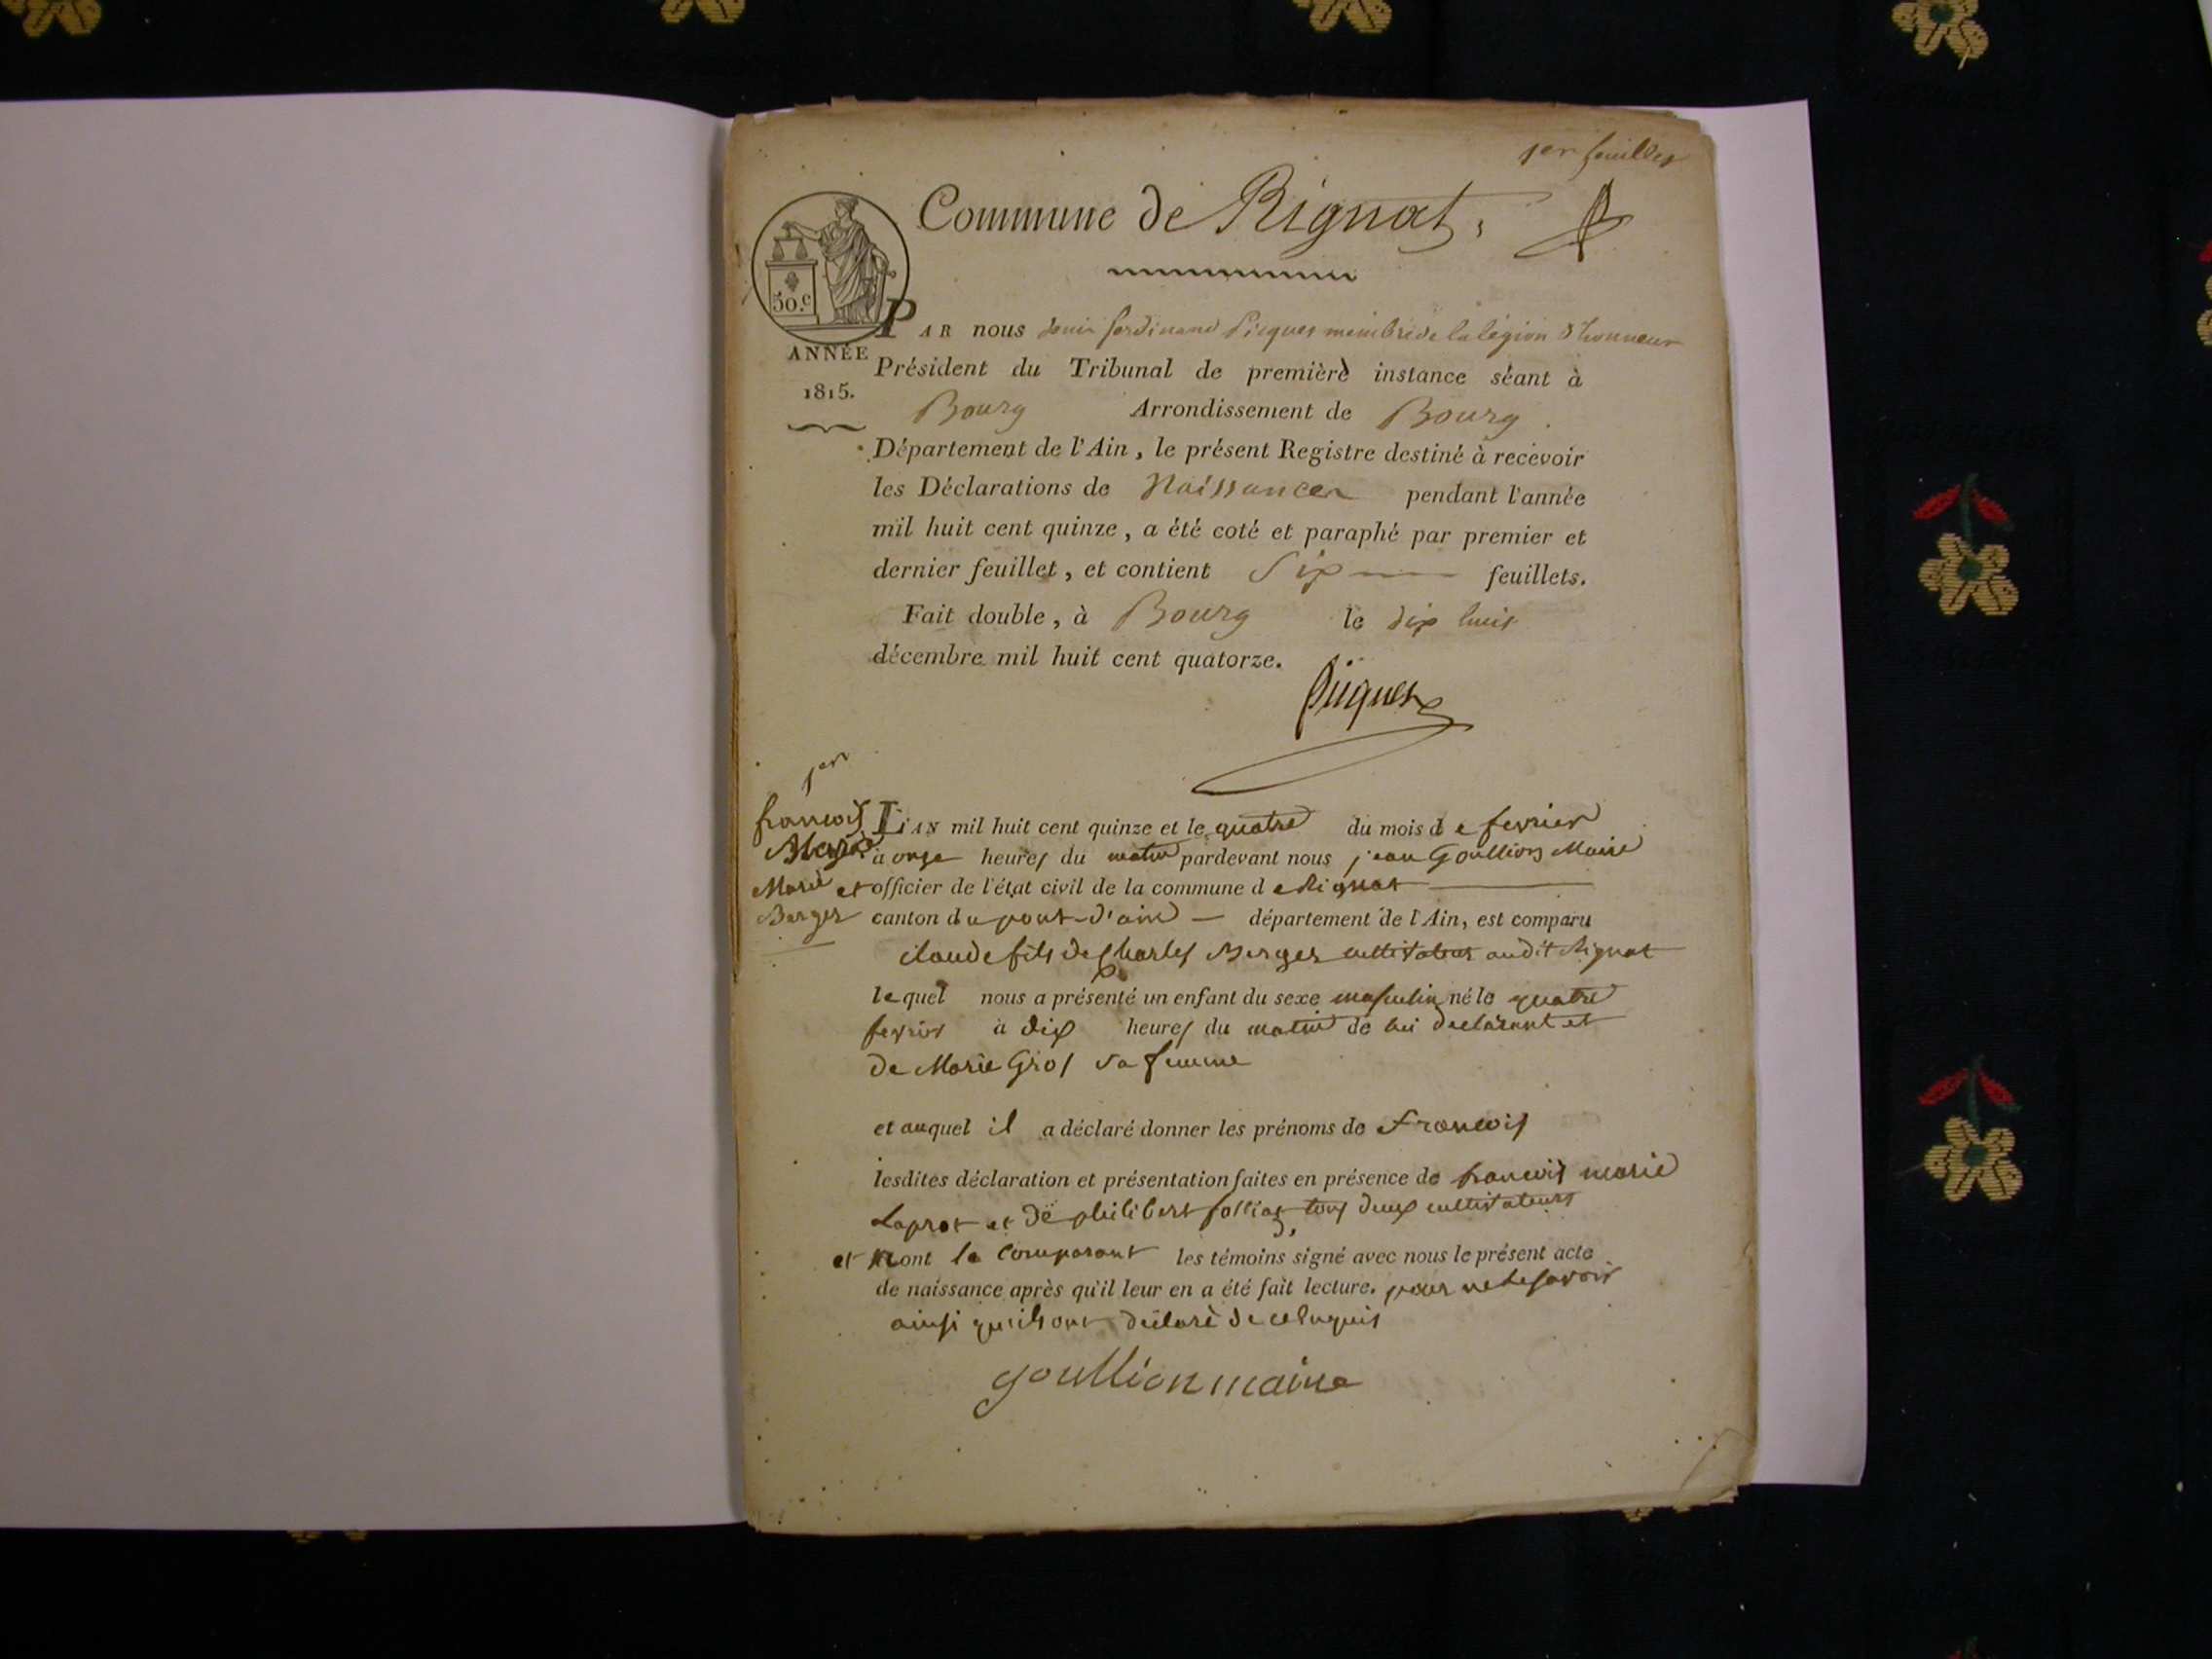 1er feuillet
Commune de Rignat,
50.c
PAR nous denis ferdinand Picquet membre de la légion d'honneur
ANNÉE
1815.
Président du Tribunal de première instance séant à
Bourg Arrondissement de Bourg.
Département de l'Ain, le présent Registre destiné à recevoir
les Déclarations de Naissances pendant l'année
mil huit cent quinze, a été coté et paraphé par premier et
dernier feuillet, et contient Six feuillets.
Fait double, à Bourg le dix huit
décembre mil huit cent quatorze.
Picquet
1er
francois
Marie
Berger
L'AN mil huit cent quinze et le quatre du mois de fevrier
à onze heures du matin pardevant nous jean Goullion Maire
et officier de l'état civil de la commune de Rignat
canton du pont-d'ain département de l'Ain, est comparu
claude fils de Charles Berger cultivateur audit Rignat
lequel nous a présenté un enfant du sexe masculin né le quatre
fevrier à dix heures du matin de lui declarant et
de Marie Gros sa femme
et auquel il a déclaré donner les prénoms de francois
lesdites déclaration et présentation faites en présence de francois marie
Laprat et de philibert tous deux cultivateurs
et n'ont le Comparant les témoins signé avec nous le présent acte
de naissance après qu'il leur en a été fait lecture. pour ne le savoir
ainsi qu'ils ont déclaré de ce Enquis
goullion maire